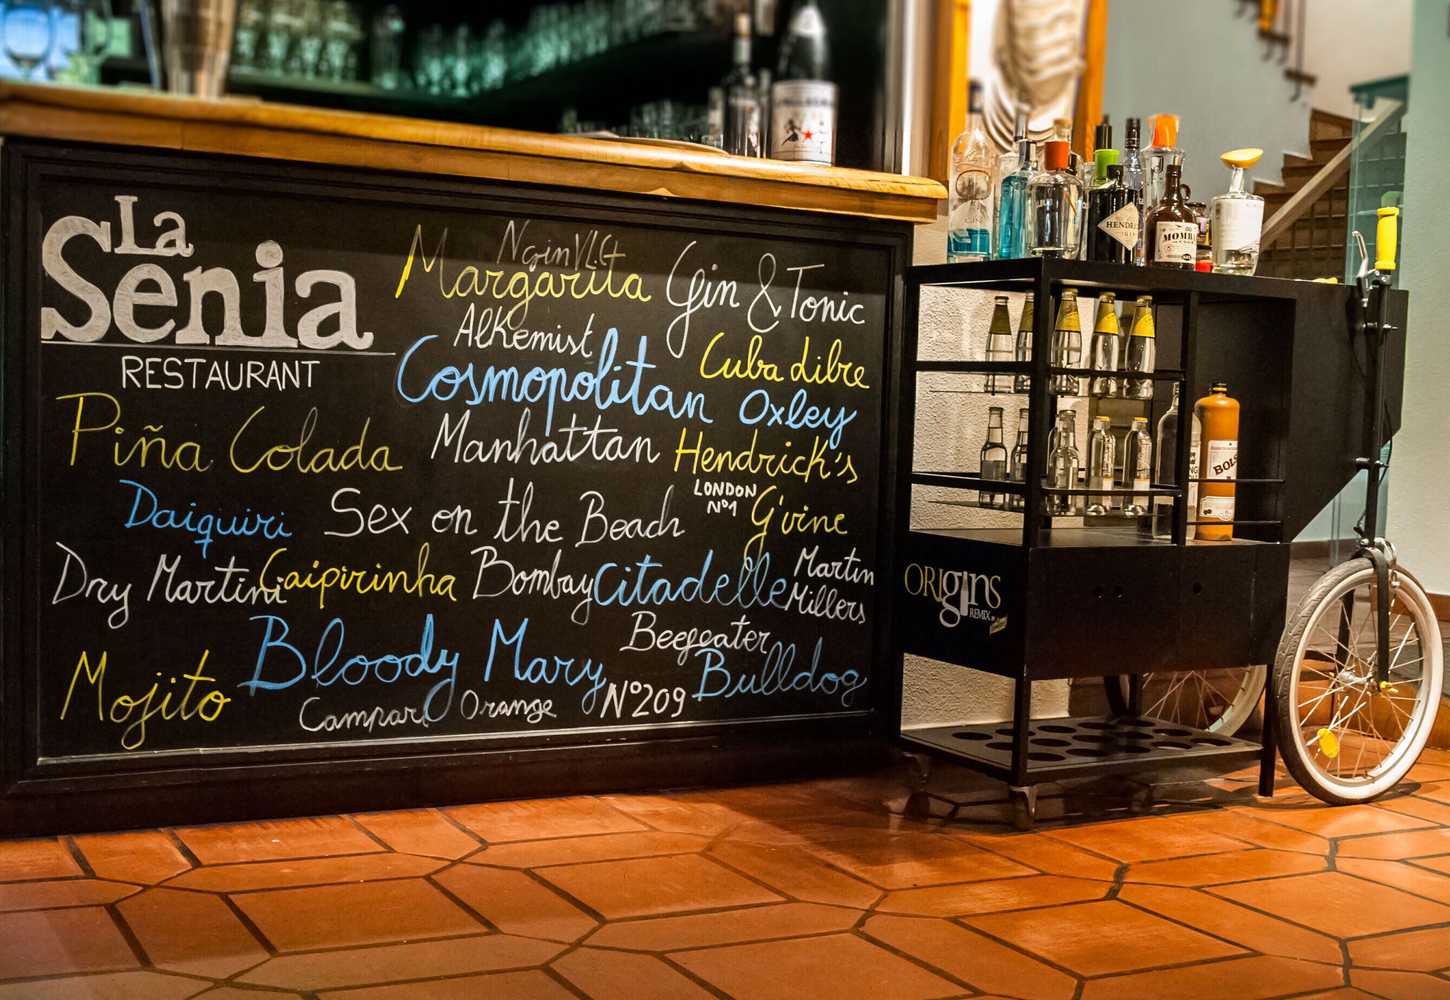 La
Senia
RESTAURANT
Margarita
Gin & Tonic
Alkemist
Cosmopolitan
Cuba dibre
Oxley
Piña Colada
Manhattan
Hendrick's
LONDON
Nº1
G'vine
Daiquiri
Sex on the Beach
Dry Martini
Caipirinha
Bombay
Citadelle
Martin
Millers
Beefeater
Bloody Mary
Bulldog
Mojito
Campari Orange
Nº209
HENDRI
MOMBA
BOLS
ORIGINS
REMIX